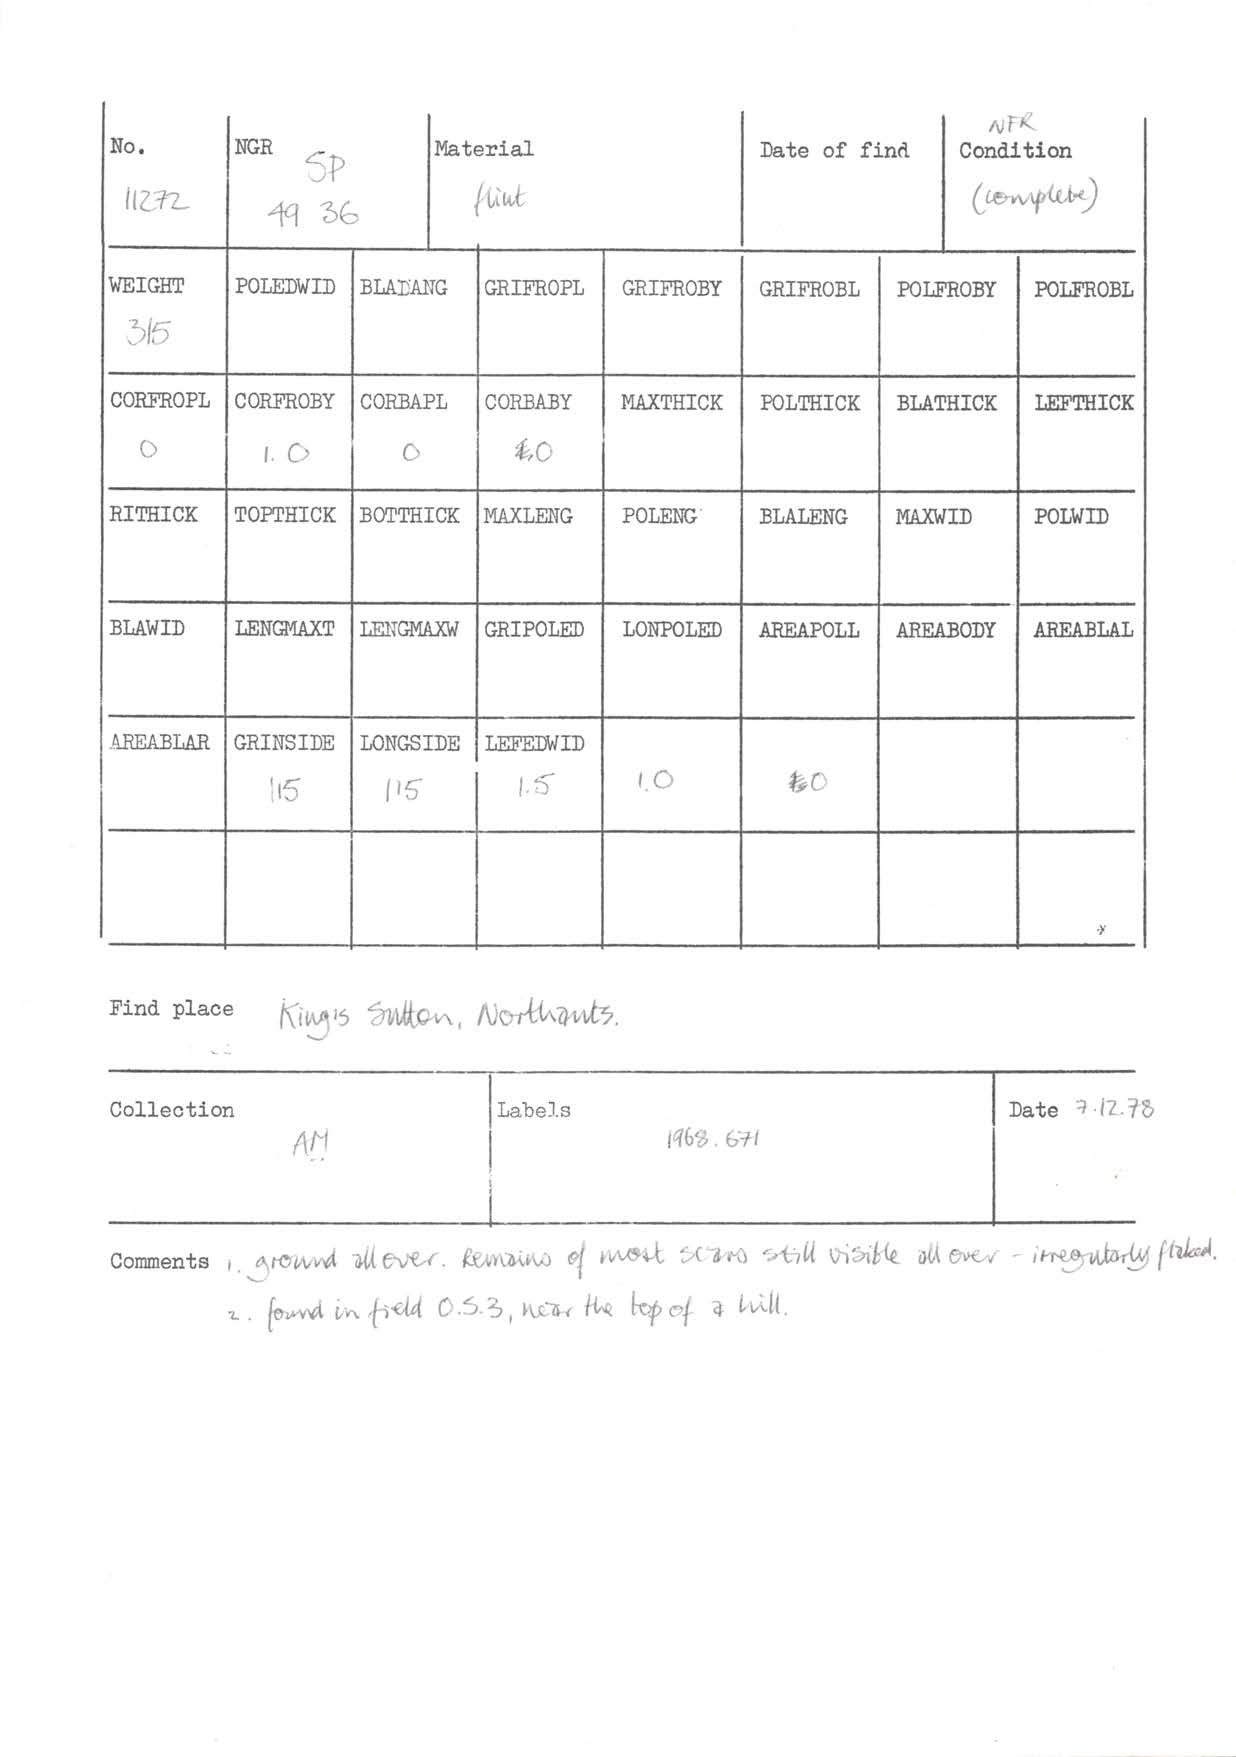 No. NGR Material Date of find NFR Condition
11272 SP 49 36 flint (complete)
WEIGHT POLEDWID BLADANG GRIFROPL GRIFROBY GRIFROBL POLFROBY POLFROBL
315
CORFROPL CORFROBY CORBAPL CORBABY MAXTHICK POLTHICK BLATHICK LEFTHICK
0 1.0 0 0
RITHICK TOPTHICK BOTTHICK MAXLENG POLENG BLALENG MAXWID POLWID
BLAWID LENGMAXT LENGMAXW GRIPOLED LONPOLED AREAPOLL AREABODY AREABLAL
AREABLAR GRINSIDE LONGSIDE LEFEDWID
115 115 1.5 1.0 0
Find place King's Sutton, Northants.
Collection Labels Date 7.12.78
AM 1968.671
Comments 1. ground all over. Remains of most scars still visible all over - irregularly flaked.
2. found in field O.S.3, near the top of a hill.